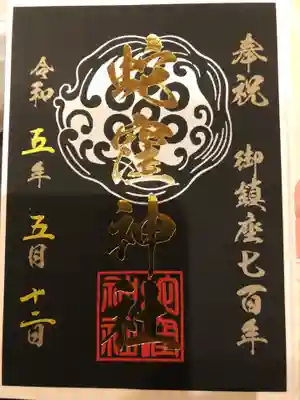 奉祝 御鎮座七百年
蛇窪神社
令和五年五月十二日